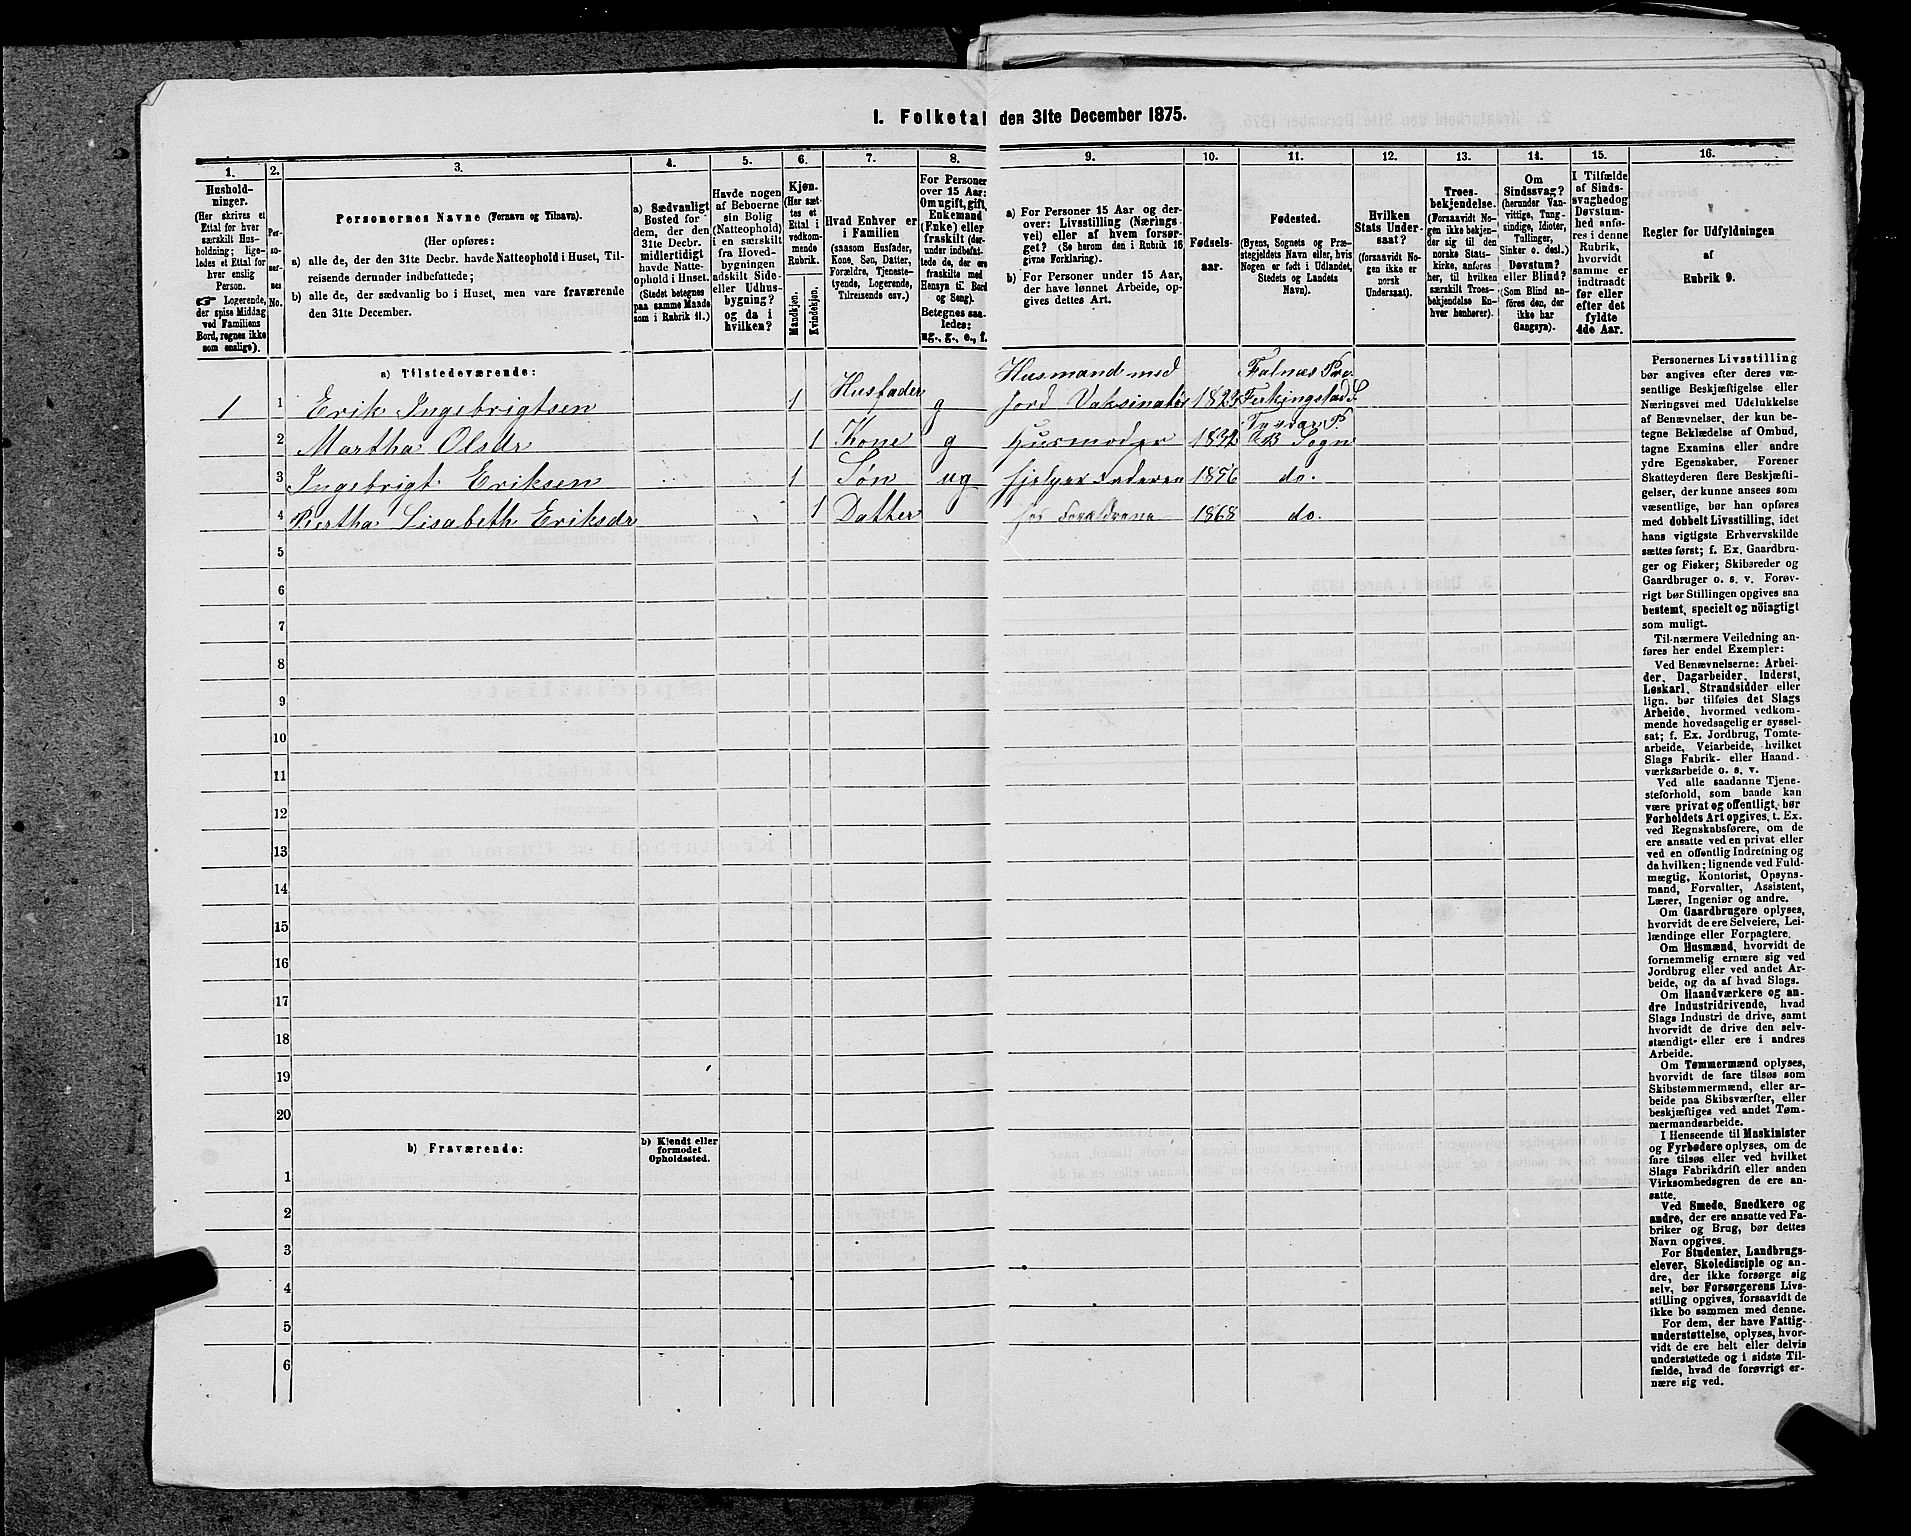 1. Folketal den 31te December 1875.
1.
Hushold-
ninger.
(Her skrives et
Ettal for hver
særskilt Hus-
holdning; lige-
ledes et Ettal for
hver enslig
Person.
Logerende,
der spise Middag
ved Familiens
Bord, regnes ikke
som enslige).
2.
Per-
so-
ner-
nes
No.
3.
Personernes Navne (Fornavn og Tilnavn).
(Her opføres:
a) alle de, der den 31te Decbr. havde Natteophold i Huset, Til-
reisende derunder indbefattede;
b) alle de, der sædvanlig bo i Huset, men vare fraværende
den 31te December.
4.
a) Sædvanligt
Bosted for
dem, der den
31te Decbr.
midlertidigt
havde Natte-
ophold i Huset.
(Stedet betegnes
paa samme Maade
som i Rubrik 11.)
5.
Havde nogen
af Beboerne
sin Bolig
(Natteophold)
i en særskilt
fra Hoved-
bygningen
adskilt Side-
eller Udhus-
bygning?
og da i
hvilken?
6.
Kjøn.
(Her sæt-
tes et
Ettal i
vedkom-
mende
Rubrik.
Mandkjøn.
Kvindekjøn.
7.
Hvad Enhver er
i Familien
(saasom Husfader,
Kone, Søn, Datter,
Forældre, Tjeneste-
tyende, Logerende,
Tilreisende osv.)
8.
For Personer
over 15 Aar:
Om ugift, gift,
Enkemand
(Enke) eller
fraskilt (der-
under indbefat-
tede de, der ere
fraskilte med
Hensyn til Bord
og Seng).
Betegnes saa-
ledes:
ug., g., e., f.
9.
a) For Personer 15 Aar og der-
over: Livsstilling (Nærings-
vei) eller af hvem forsør-
get? (Se herom den i Rubrik 16
givne Forklaring).
b) For Personer under 15 Aar,
der have lønnet Arbeide, op-
gives dettes Art.
10.
Fødsels-
aar.
11.
Fødested.
(Byens, Sognets og Præ-
stegjeldets Navn eller, hvis
Nogen er født i Udlandet,
Stedets og Landets
Navn).
12.
Hvilken
Stats Under-
saat?
(forsaavidt No-
gen ikke er
norsk
Undersaat).
13.
Troes-
bekjendelse.
(Forsaavidt No-
gen ikke bekjen-
der sig til den
norske Stats-
kirke, anføres
her, til hvilken
særskilt Troes-
bekjendelse En-
hver henhører).
14.
Om
Sindssvag?
(herunder Van-
vittige, Tung-
sindige, Idioter,
Tullinger,
Sinker o. desl.)
Døvstum?
eller Blind?
(Som Blind an-
føres den, der
ikke har
Gangsyn).
15.
I Tilfælde
af Sinds-
svaghed og
Døvstum-
hed anfø-
res i denne
Rubrik,
hvorvidt
samme er
indtraadt
før eller
efter det
fyldte
4de Aar.
16.
Regler for Udfyldningen
af
Rubrik 9.
a) Tilstedeværende:
1 1 Erik Ingebrigtsen 1 Husfader g Husmand med
Jord Vaksinatør 1823 Falnæs Pre.
Ferkingstad S.
2 Martha Olsdr 1 Kone g Husmoder 1832 Tysvær P.
B Sogn
3 Ingebrigt Eriksen 1 Søn ug hjelper Faderen 1856 do.
4 Bertha Lisabeth Eriksdr 1 Datter hos Forældrene 1868 do.
5
6
7
8
9
10
11
12
13
14
15
16
17
18
19
20
b) Fraværende:
b) Kjendt eller
formodet
Opholdssted.
1
2
3
4
5
6
Personernes Livsstilling
bør angives efter deres væ-
sentlige Beskjæftigelse eller
Næringsvei med Udelukkelse
af Benævnelser, der kun be-
tegne Beklædelse af Ombud,
tagne Examina eller andre
ydre Egenskaber. Forener
Skatteyderen flere Beskjæfti-
gelser, der kunne ansees som
væsentlige, bør han opføres
med dobbelt Livsstilling, idet
hans vigtigste Erhvervskilde
sættes først; f. Ex. Gaardbru-
ger og Fisker; Skibsreder og
Gaardbruger o. s. v. Forøv-
rigt bør Stillingen opgives saa
bestemt, specielt og nöiagtigt
som muligt.
Til nærmere Veiledning an-
føres her endel Exempler:
Ved Benævnelserne: Arbei-
der, Dagarbeider, Inderst,
Løskarl, Strandsidder eller
lign. bør tilføies det Slags
Arbeide, hvormed vedkom-
mende hovedsagelig er syssel-
sat; f. Ex. Jordbrug, Tomte-
arbeide, Veiarbeide, hvilket
Slags Fabrik- eller Haand-
værksarbeide o. s. v.
Ved alle saadanne Tjene-
steforhold, som baade kan
være privat og offentligt, bør
Forholdets Art opgives, t. Ex.
ved Regnskabsførere, om de
ere ansatte ved en privat eller
ved en offentlig Indretning og
da hvilken; lignende ved Fuld-
mægtig, Kontorist, Opsyns-
mand, Forvalter, Assistent,
Lærer, Ingeniør og andre.
Om Gaardbrugere oplyses,
hvorvidt de ere Selveiere, Lei-
lændinge eller Forpagtere.
Om Husmænd, hvorvidt de
fornemmelig ernære sig ved
Jordbrug eller ved andet Ar-
beide, og da af hvad Slags.
Om Haandværkere og an-
dre Industridrivende, hvad
Slags Industri de drive, samt
hvorvidt de drive den selv-
stændigt eller ere i andres
Arbeide.
Om Tømmermænd oplyses,
hvorvidt de fare tilsøs som
Skibstømmermænd, eller ar-
beide paa Skibsværfter, eller
beskjæftiges ved andet Tøm-
mermandsarbeide.
I Henseende til Maskinister
og Fyrbødere oplyses, om de
fare tilsøs eller ved hvilket
Slags Fabrikdrift eller anden
Virksomhedsgren de ere an-
satte.
Ved Smede, Snedkere og
andre, der ere ansatte ved Fa-
briker og Brug, bør dettes
Navn opgives.
For Studenter, Landbrugs-
elever, Skoledisciple og an-
dre, der ikke forsørge sig
selv, bør Forsørgerens Livs-
stilling opgives, forsaavidt de
ikke bo sammen med denne.
For dem, der have Fattig-
understøttelse, oplyses, hvor-
vidt de ere helt eller delvis
understøttede og i sidste Til-
fælde, hvad de forøvrigt er-
nære sig ved.